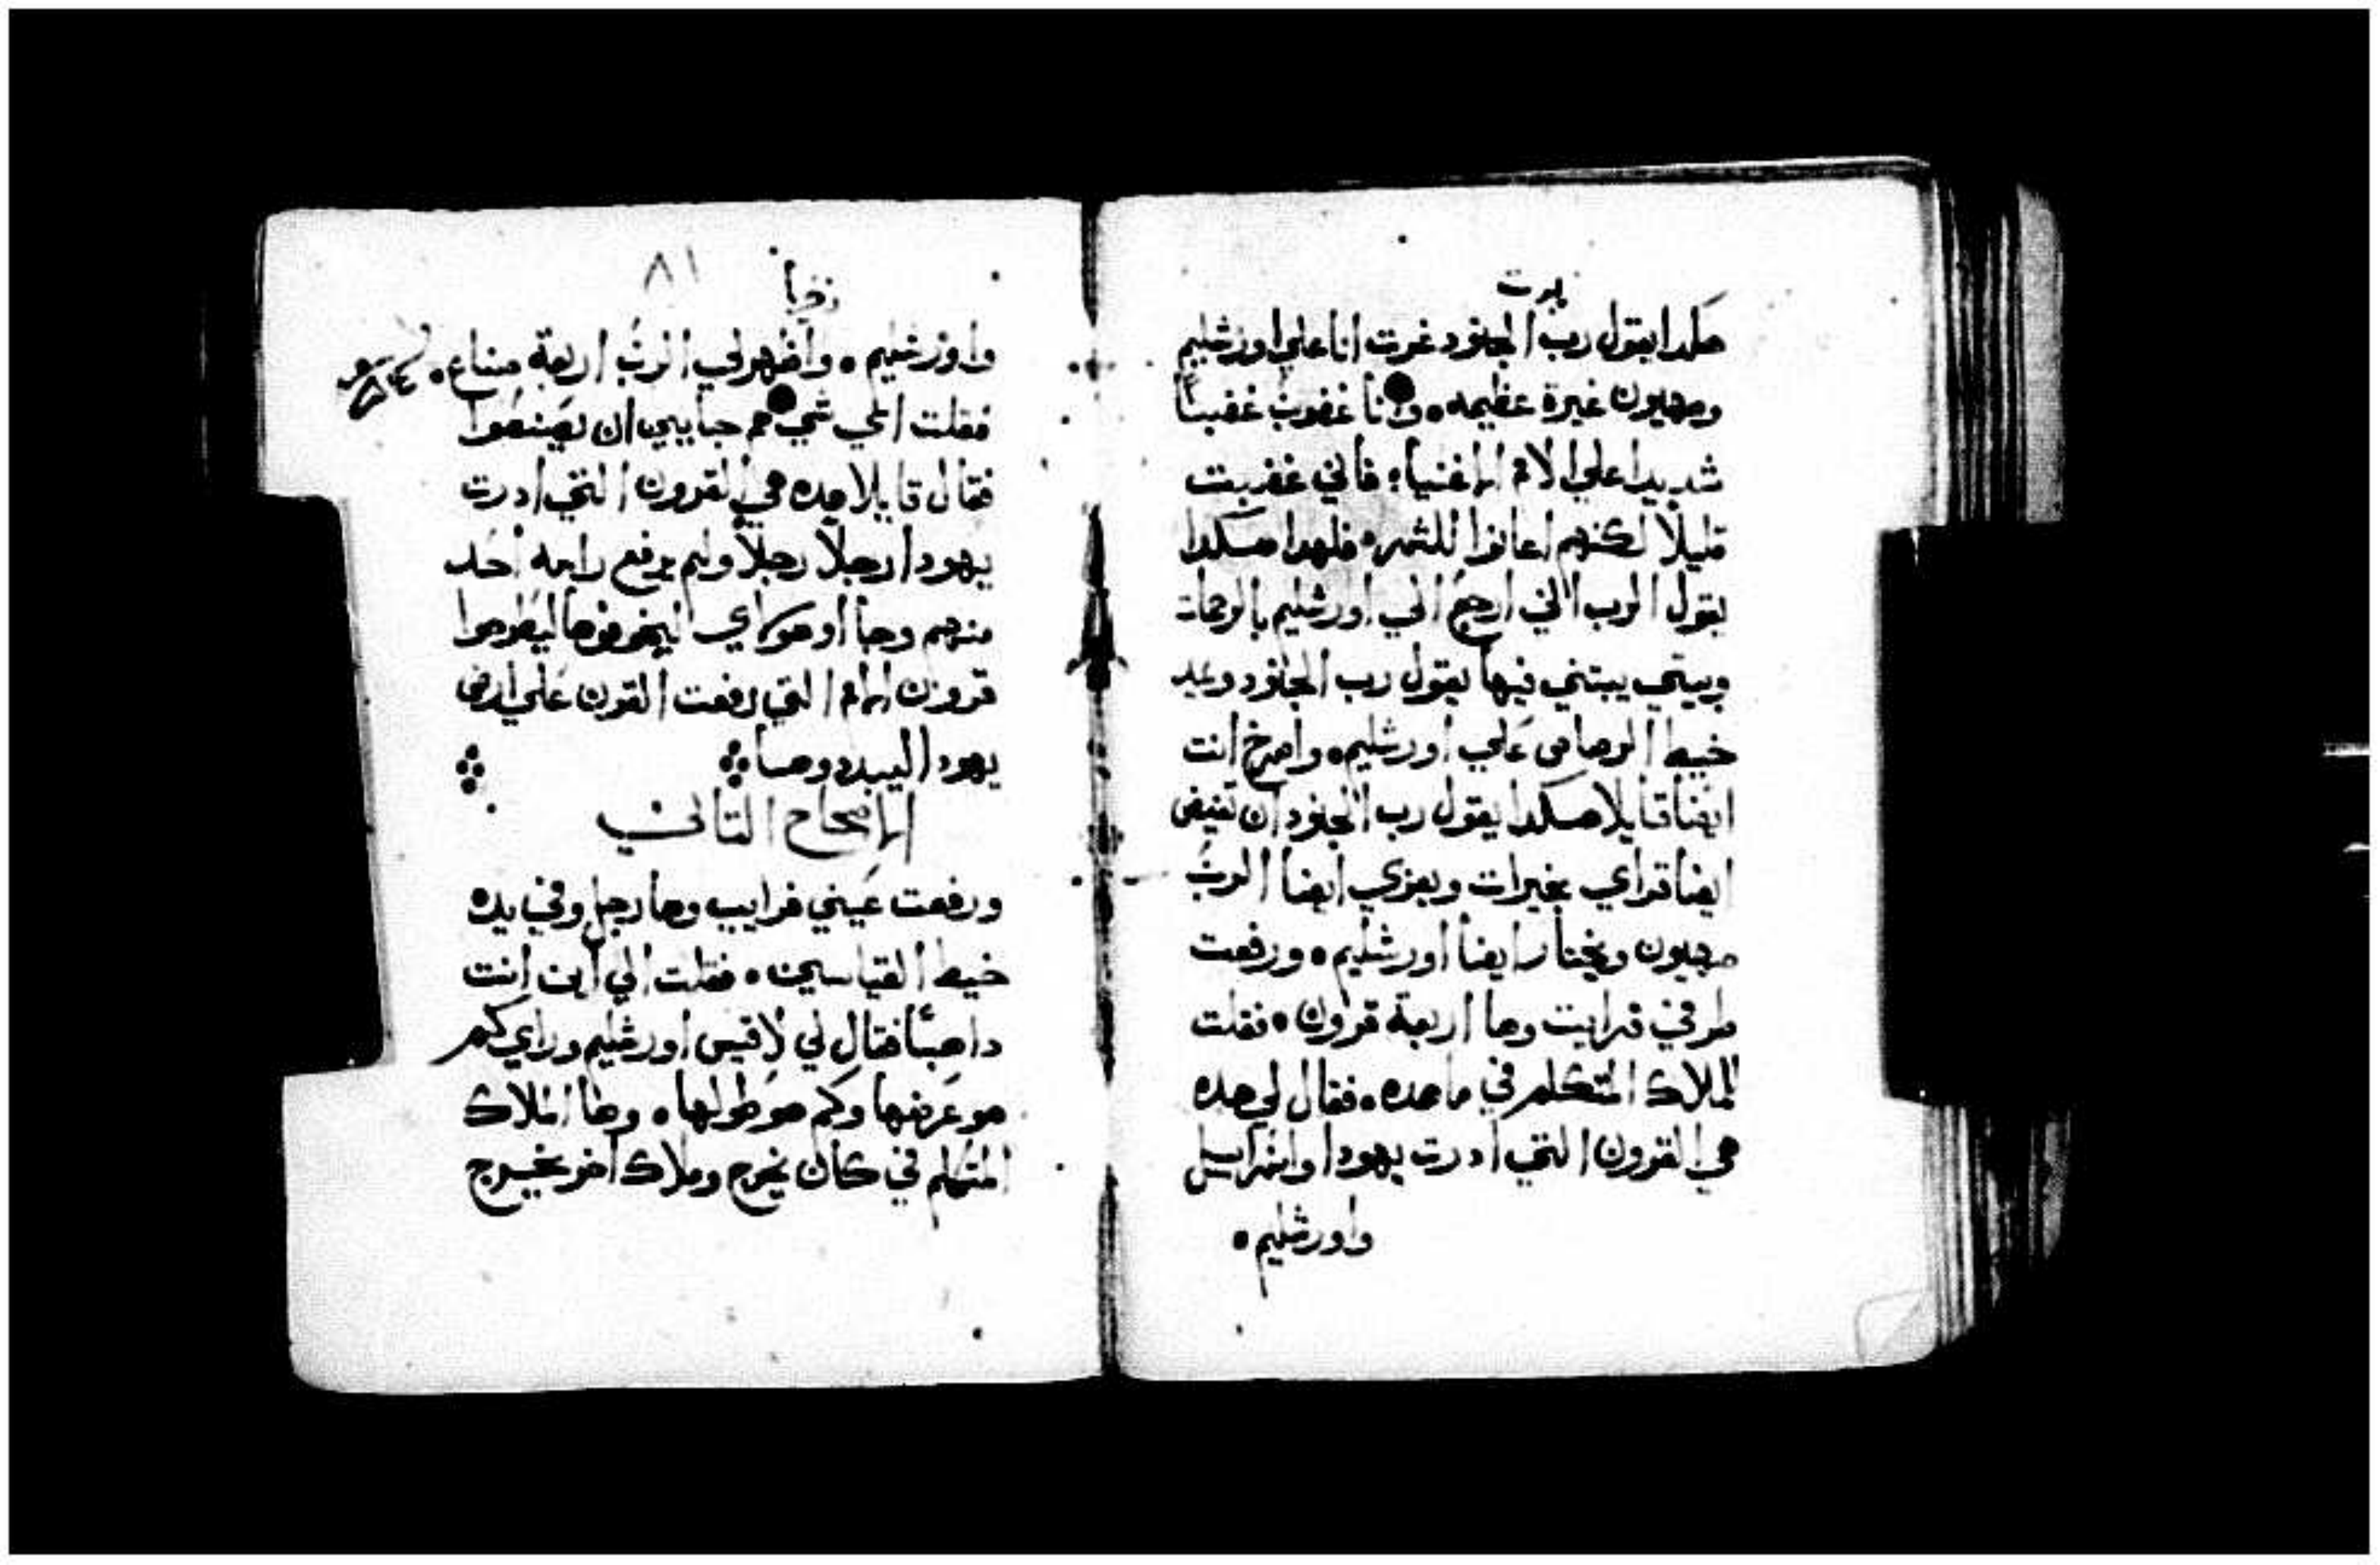 نبوت
هكدا يقول رب الجنود غرت انا علي اورشليم
وصهيون غيرة عظيمه • وانا غضوب غضبًا
شديدا علي الامم الاغنيا؛ فاني غضبت
قليلًا لكنهم اعانوا للشر • فلهدا هكدا
يقول الرب اني ارجع الي اورشليم بالرحمات
وبيتي يبتني فيها يقول رب الجنود ويمد
خيط الرصاص علي اورشليم • واصرخ انت
ايضا قايلا هكدا يقول رب الجنود ان تفيض
ايضا قراي بخيرات ويعزي ايضا الرب
صهيون ويختار ايضا اورشليم • ورفعت
طرفي فرايت وها اربعة قرون • فقلت
للملاك المتكلم في ما هده • فقال لي هده
هي القرون التي ادرت يهودا واسرايل
واورشليم •
زخيا
٨١
واورشليم • واظهر لي الرب اربعة صناع •
فقلت الي اي شي هم جايين ان يصنعوا
فقال قايلا هده هي القرون التي ادرت
يهودا رجلًا رجلًا ولم يرفع راسه احد
منهم وجا اوهولاي ليخوفوها ليطرحوا
قرون الامم التي رفعت القرن علي ارض
يهودا ليبددوها
الاصحاح التاني
ورفعت عيني فرايت وها رجل وفي يده
خيط القياسين • فقلت الي اين انت
داهبًا فقال لي لاقيس اورشليم وراي كم
هو عرضها وكم هو طولها • وها الملاك
المتكلم في كان يخرج وملاك اخر يخرج